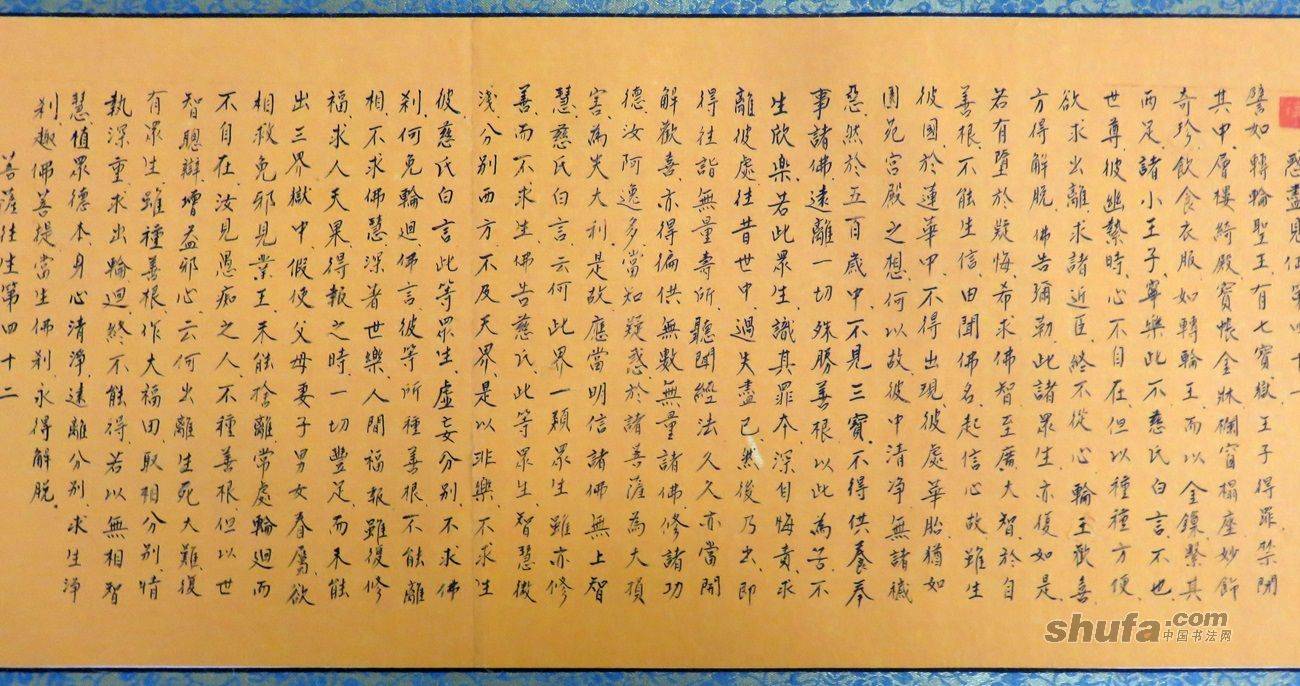 惑盡見佛第四十一
譬如轉輪聖王有七寶獄王子得罪禁閉
其中層樓綺殿寶帳金牀欄窗榻座妙飾
奇珍飲食衣服如轉輪王而以金鎖繫其
兩足諸小王子寧樂此不慈氏白言不也
世尊彼幽縶時心不自在但以種種方便
欲求出離求諸近臣終不從心輪王歡喜
方得解脫佛告彌勒此諸眾生亦復如是
若有墮於疑悔希求佛智至廣大智於自
善根不能生信由聞佛名起信心故雖生
彼國於蓮華中不得出現彼處華胎猶如
園苑宮殿之想何以故彼中清淨無諸穢
惡然於五百歲中不見三寶不得供養奉
事諸佛遠離一切殊勝善根以此為苦不
生欣樂若此眾生識其罪本深自悔責求
離彼處往昔世中過失盡已然後乃出即
得往詣無量壽所聽聞經法久久亦當開
解歡喜亦得徧供無數無量諸佛修諸功
德汝阿逸多當知疑惑於諸菩薩為大損
害為失大利是故應當明信諸佛無上智
慧慈氏白言云何此界一類眾生雖亦修
善而不求生佛告慈氏此等眾生智慧微
淺分別西方不及天界是以非樂不求生
彼慈氏白言此等眾生虛妄分別不求佛
剎何免輪迴佛言彼等所種善根不能離
相不求佛慧深著世樂人間福報雖復修
福求人天果得報之時一切豐足而未能
出三界獄中假使父母妻子男女眷屬欲
相救免邪見業王未能捨離常處輪迴而
不自在汝見愚痴之人不種善根但以世
智聰辯增益邪心云何出離生死大難復
有眾生雖種善根作大福田取相分別情
執深重求出輪迴終不能得若以無相智
慧植眾德本身心清淨遠離分別求生淨
剎趣佛菩提當生佛剎永得解脫。
菩薩往生第四十二
shufa.com
中国书法网